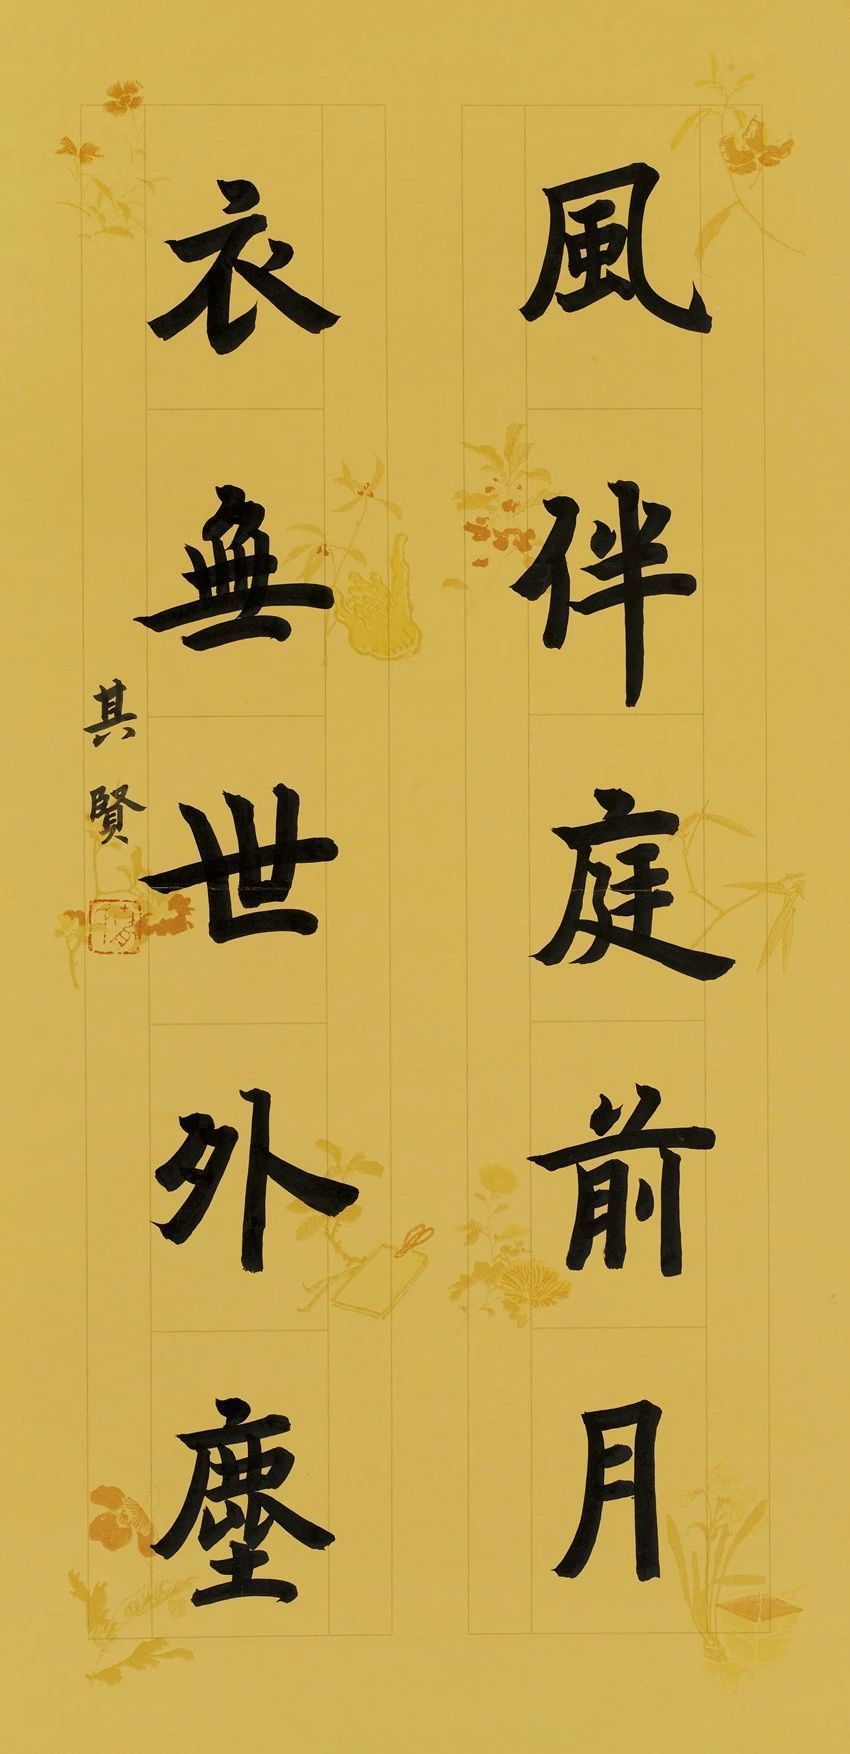 風伴庭前月
衣無世外塵
其賢